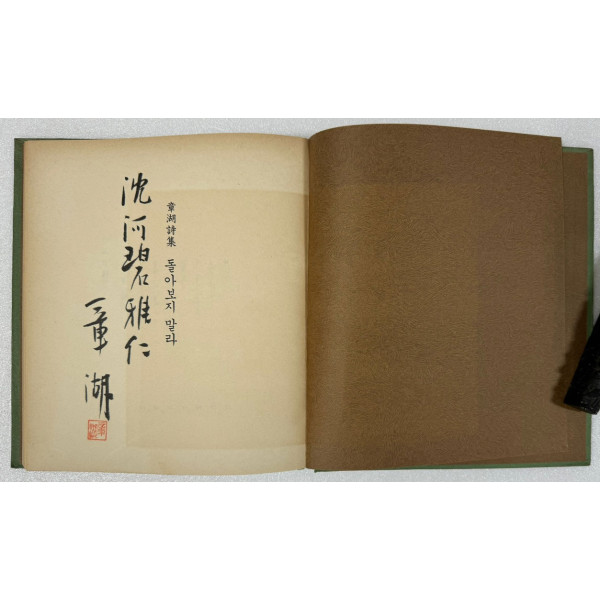 章湖詩集 돌아보지 말라
沈河碧雅仁
章湖